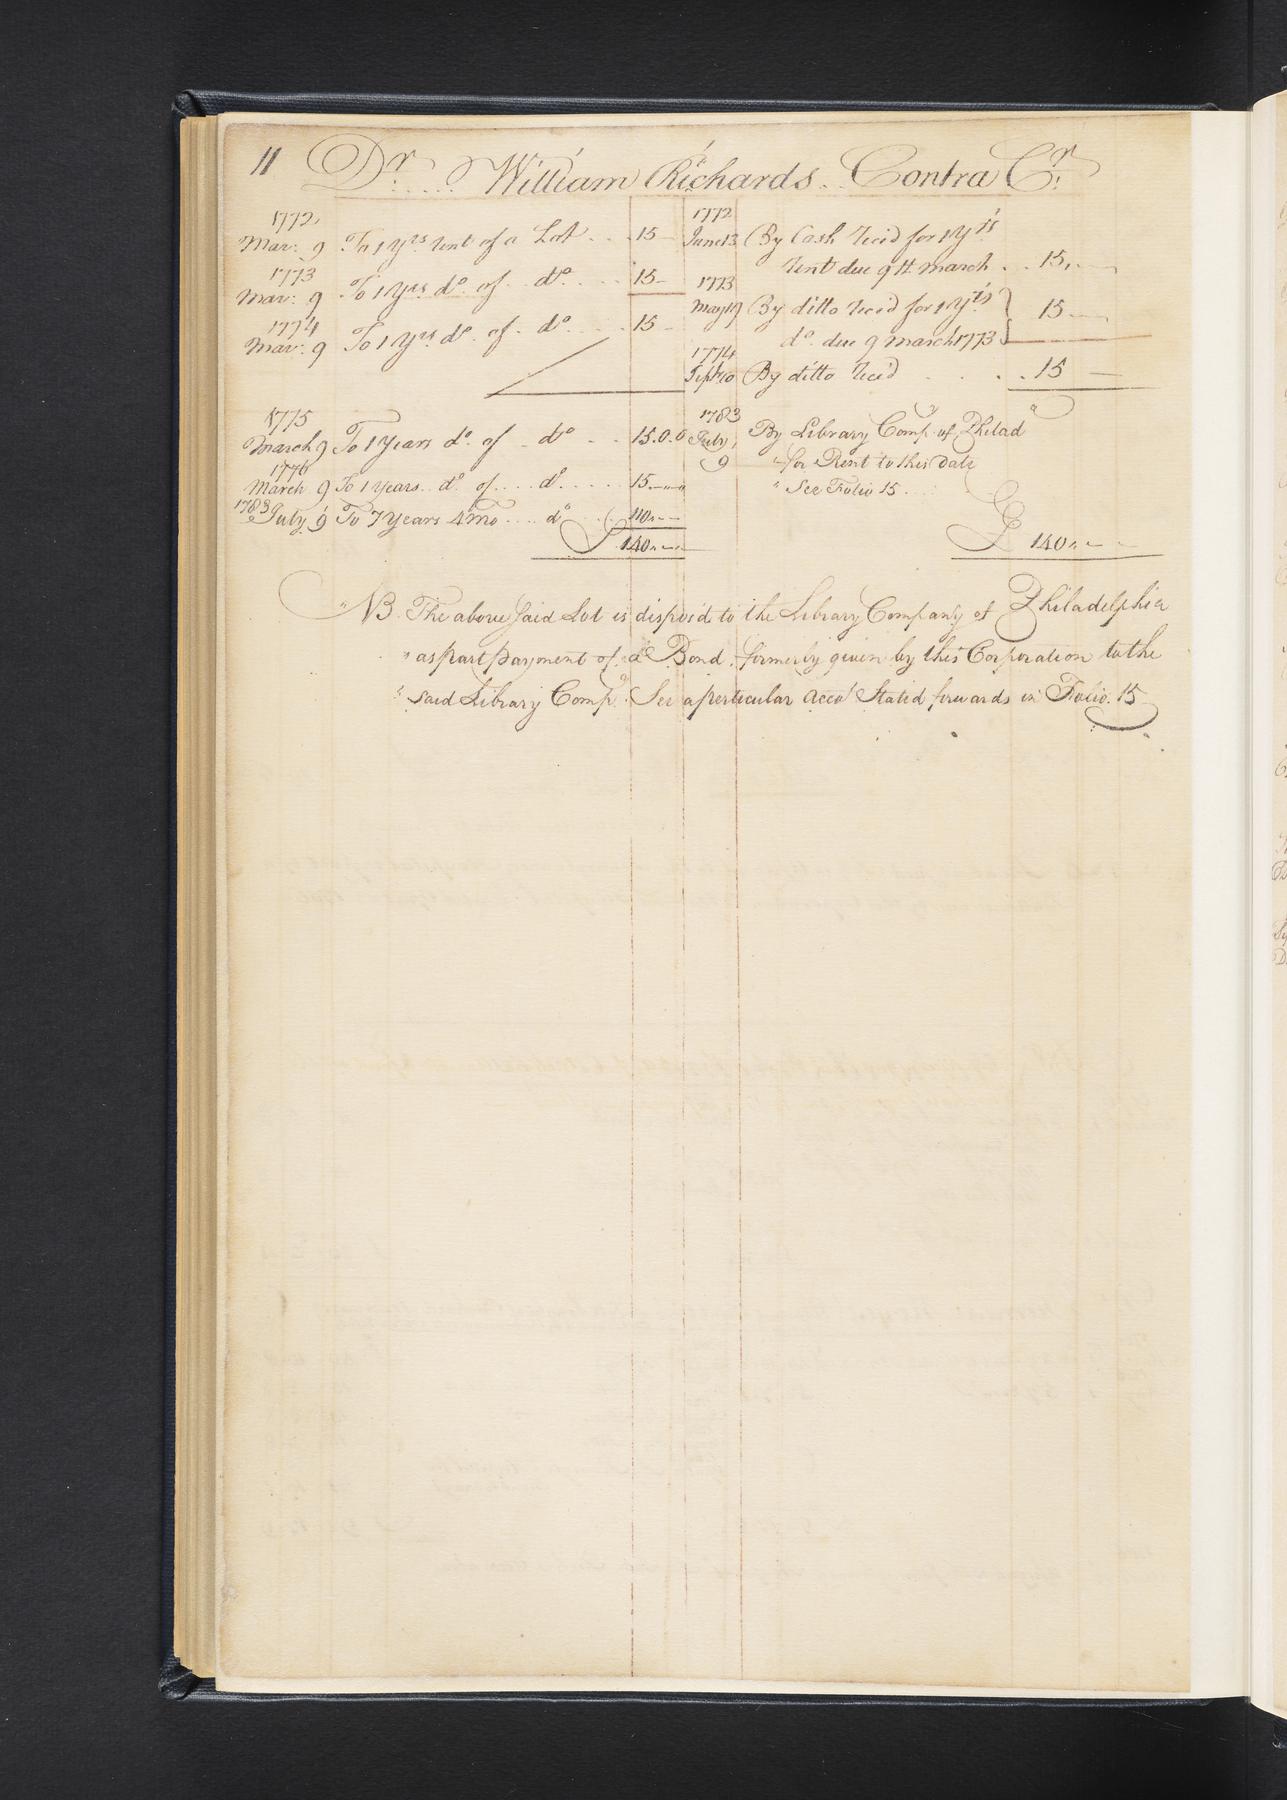 11 Dr. William Richards Contra Cr.
1772
Mar: 9 To 1 Yrs rent of a Lot 15
1773
Mar: 9 To 1 Yrs do. of do. 15
1774
Mar: 9 To 1 Yrs do. of do. 15
1775
March 9 To 1 Years do. of do 15.0.0
1776
March 9 To 1 Years do. of do. 15
1783 July 9 To 7 Years 4 mo do 110
£ 140
1772
June 13 By Cash recd for 1 Yrs
rent due 9th March 15
1773
May 19 By ditto recd for 1 Yrs
do. due 9 March 1773 15
1774
Sept 10 By ditto recd 15
1783
July 9 By Library Comp. of Philada
for Rent to this Date
See Folio 15
£ 140
NB. The above said Lot is disposd to the Library Company of Philadelphia
as part payment of a Bond, formerly given by this Corporation to the
said Library Compy. See a perticular Acco Stated forwards in Folio 15